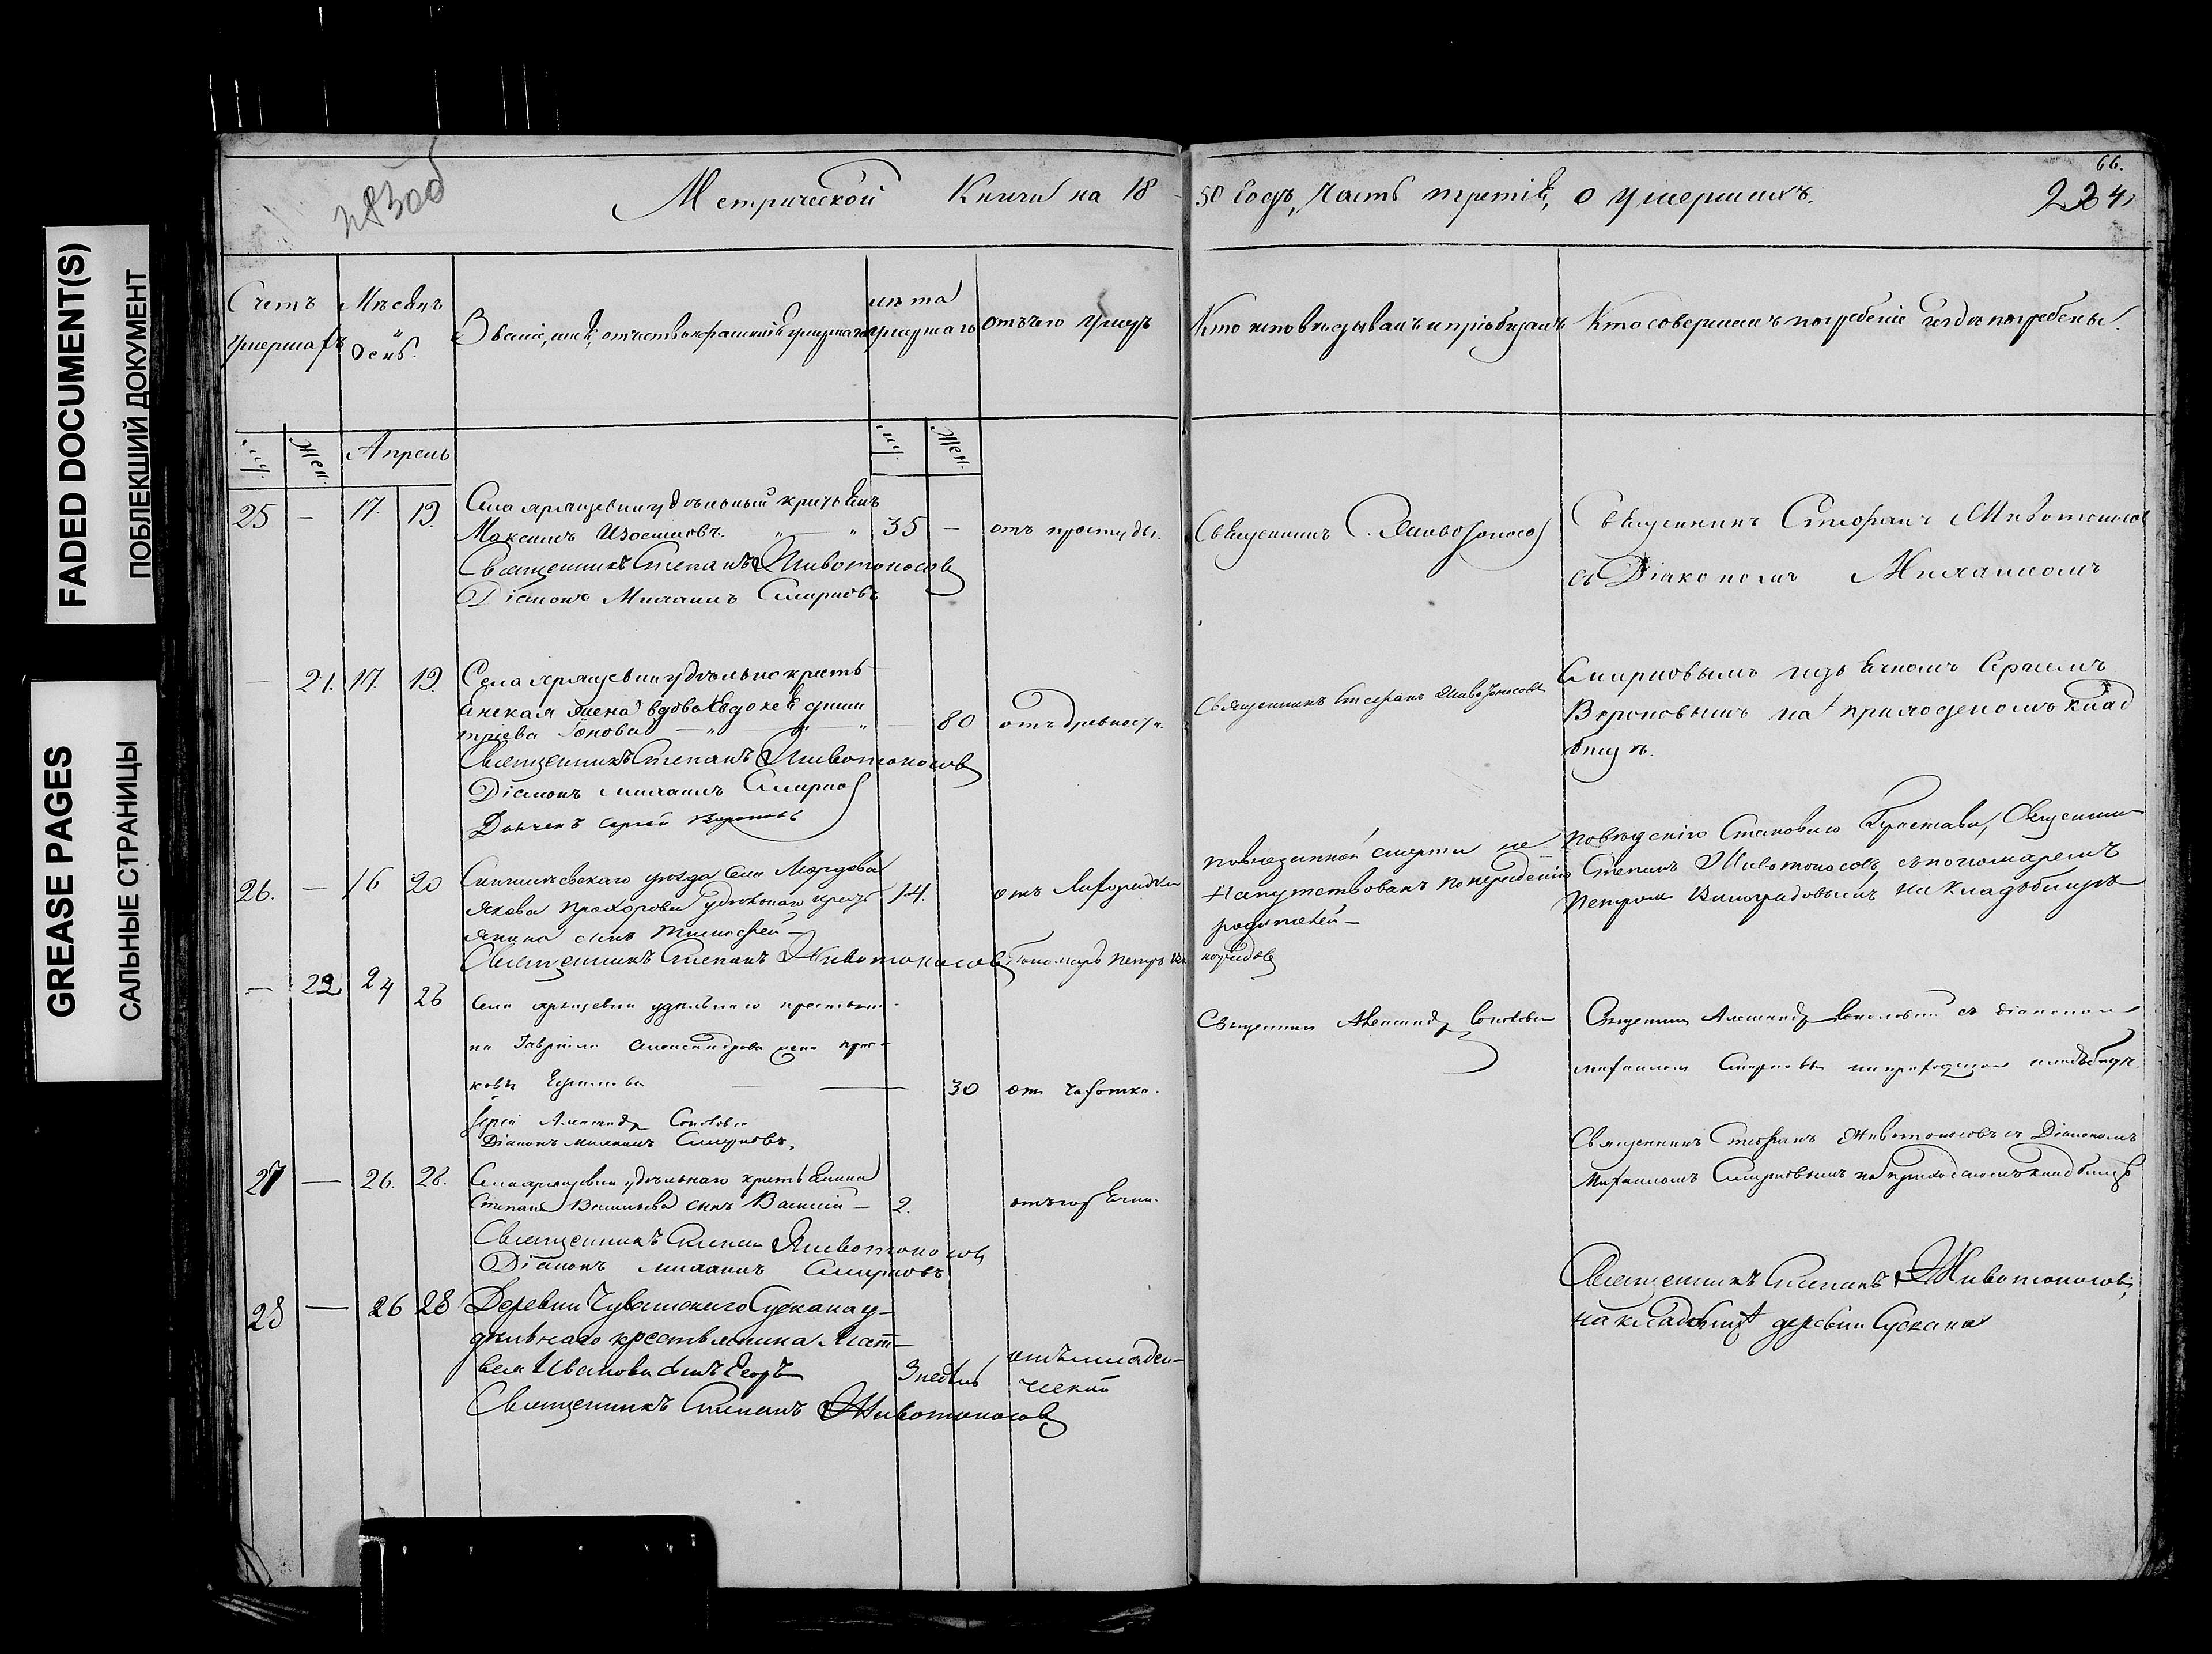 FADED DOCUMENT(S)
ПОБЛЕКШИЙ ДОКУМЕНТ
GREASE PAGES
САЛЬНЫЕ СТРАНИЦЫ
Метрической Книги на 18
50 годъ, Часть третія, о умершихъ.
66.
224
Счетъ умершихъ
Мѣсяцъ и день.
Званіе, имя, отчество и фамилія умершаго
лѣта умершаго
Отъ чего умеръ
Кто исповѣдывалъ и пріобщалъ
Кто совершалъ погребеніе и гдѣ погребены.
му.
Жен.
Апрель
му.
Жен.
25 — 17. 19. Села удѣльный крестьянинъ
Максимъ Изосимовъ. 35 — отъ простуды.
Священникъ Стефанъ Животоносовъ
Діаконъ Михаилъ Смирновъ
Священникъ С. Животоносов
Священникъ Стефанъ Животоносов
съ Діакономъ Михаиломъ
— 21. 17. 19. Села удѣльнo кресть
янская жена вдова Евдокея Дмит
ріева Іонова — 80 отъ древности.
Священникъ Стефанъ Животоносовъ
Діаконъ Михаилъ Смирнов
Дьячекъ Сергей Вороновъ
Священникъ Стефанъ Животоносовъ
Смирновымъ и дьячкомъ Сергіемъ
Вороновымъ на приходскомъ клад
бищѣ.
26. — 16 20 уѣзда села Мордова
Якова Прохорова удѣльнаго кресть
янина сынъ Тимофей — 14. отъ лихорадки
Священникъ Стефанъ Животоносовъ Пономарь Петръ Ви
ноградовъ
не
напутствованъ по нерадѣнію
родителей —
Становаго Пристава, Священник
Стефанъ Животоносовъ съ пономаремъ
Петромъ Виноградовымъ на кладбищѣ
— 22 24 26 Села удѣльнаго крестьяни
на Гавріила Александрова жена Прас
ковья — 30 от чахотки.
Іерей Александръ Соколовъ
Діаконъ Михаилъ Смирновъ.
Священник Александръ Соколовъ
Священник Александръ Соколовъ съ діаконом
Михаилом Смирновым на приходском кладбищѣ.
27 — 26. 28. Села удѣльнаго крестьянина
Степана Васильева сынъ Василій — 2. отъ горячки.
Священникъ Стефанъ Животоносовъ
Діаконъ Михаилъ Смирновъ
Священникъ Стефанъ Животоносовъ съ Діакономъ
Михаиломъ Смирновымъ на приходскомъ кладбищѣ
28 — 26 28 Деревни Чувашскаго Сускана у-
дѣльнаго крестьянина Мат-
вея Иванова сынъ Егоръ 3 недѣль отъ младен-
ческой
Священникъ Стефанъ Животоносовъ
Священникъ Стефанъ Животоносовъ,
на кладбищѣ деревни Сускана